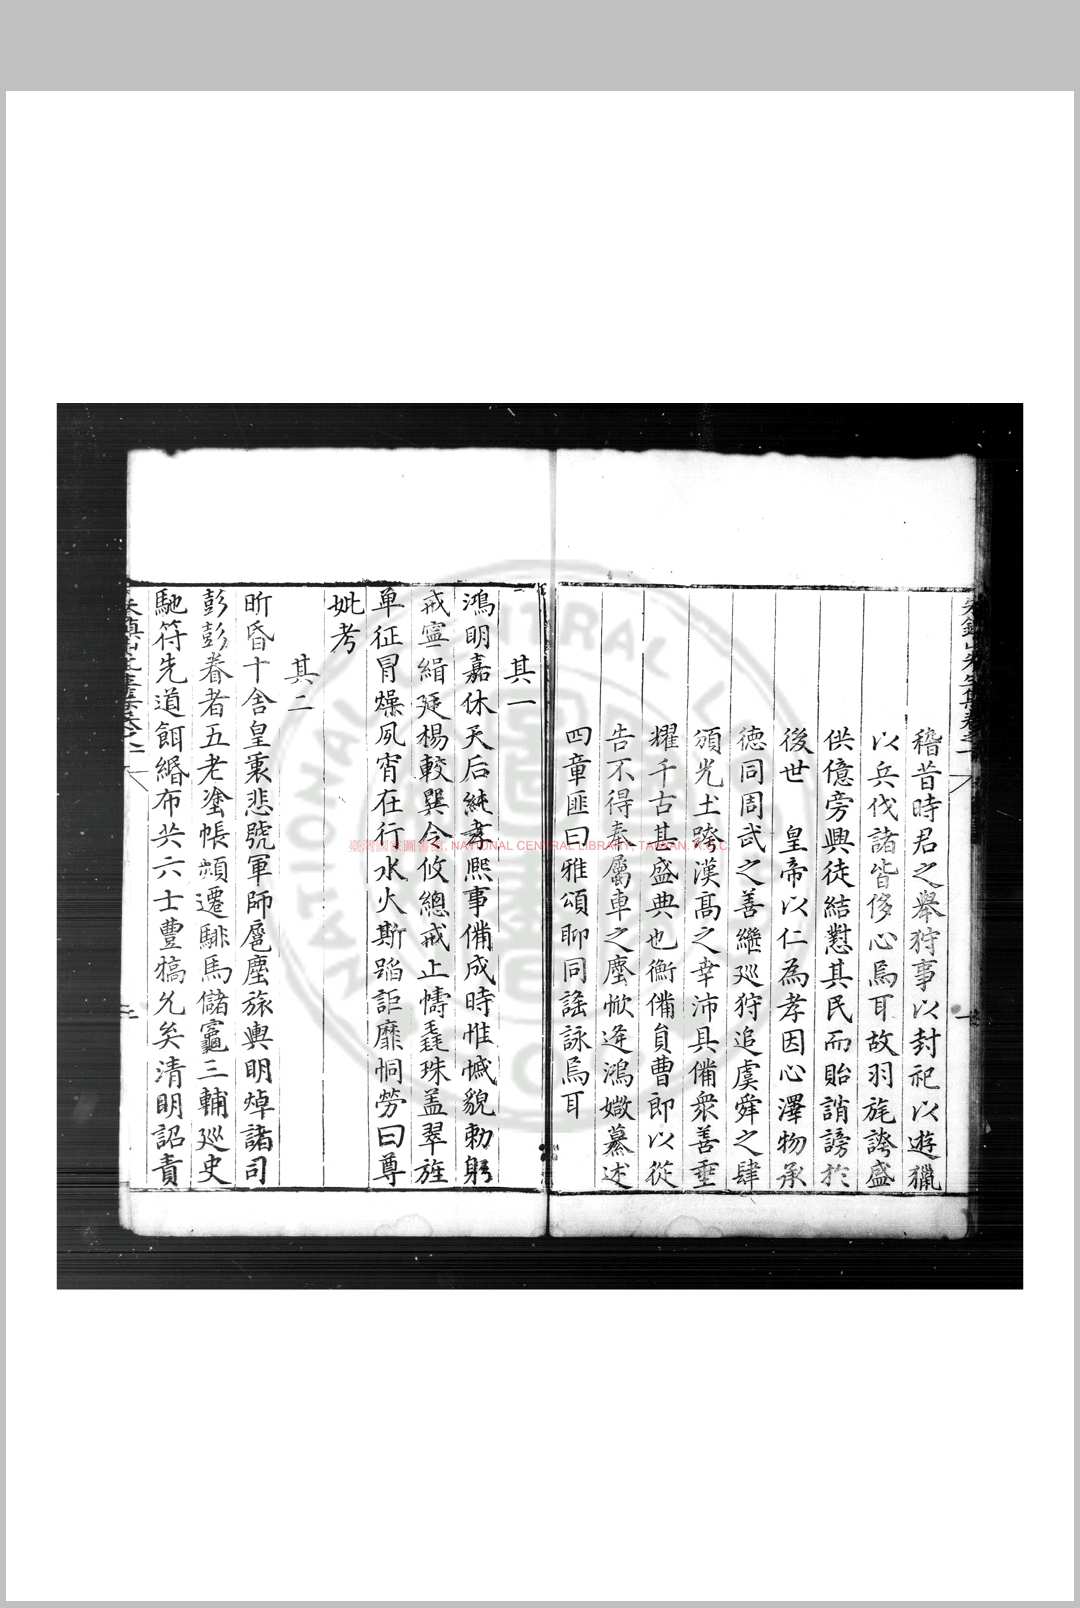 稽昔時君之舉狩事以封祀以遊獵
以兵伐諸皆侈心焉耳故羽旄誇盛
供億旁興徒結懟其民而貽誚謗於
後世 皇帝以仁為孝因心澤物承
德同周武之善繼巡狩追虞舜之肆
頒光土跨漢高之幸沛具備眾善垂
耀千古甚盛典也衡備員曹郎以從
告不得奉屬車之塵惟逢鴻媺纂述
四章匪曰雅頌聊同謠詠焉耳
其一
鴻明嘉休天后純孝熙事備成時惟
貌勑躬
戒寧緝
楊較巽令攸總戒止
珠蓋翠旌
單征冒燥夙宵在行水火斯蹈詎靡恫勞曰尊
妣考
其二
昕昏十舍皇衷悲號軍師扈塵旅輿明焯諸司
彭彭眷者五老塗帳
遷騑馬儲
三輔巡史
馳符先道餌緡布共六士豐犒允矣清明詔責
臺灣國家圖書館, NATIONAL CENTRAL LIBRARY, TAIWAN, R.O.C.